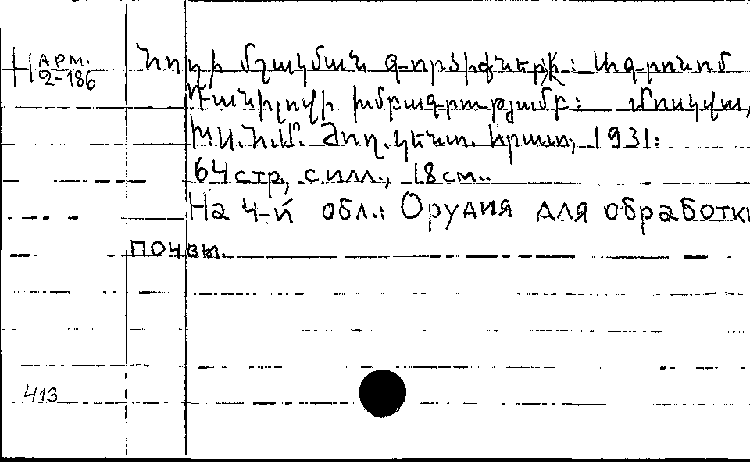 Арм.
2-186
Հողի մշակման գործիքներ: Ագրոնոմ
Դանիլովի խմբագրությամբ: Մոսկվա,
ԽՍՀՄ Ժող. կենտ. հրատ, 1931:
64 стр, с илл., 18 см..
На 4-й обл.: Орудия для обработки
почвы.
413